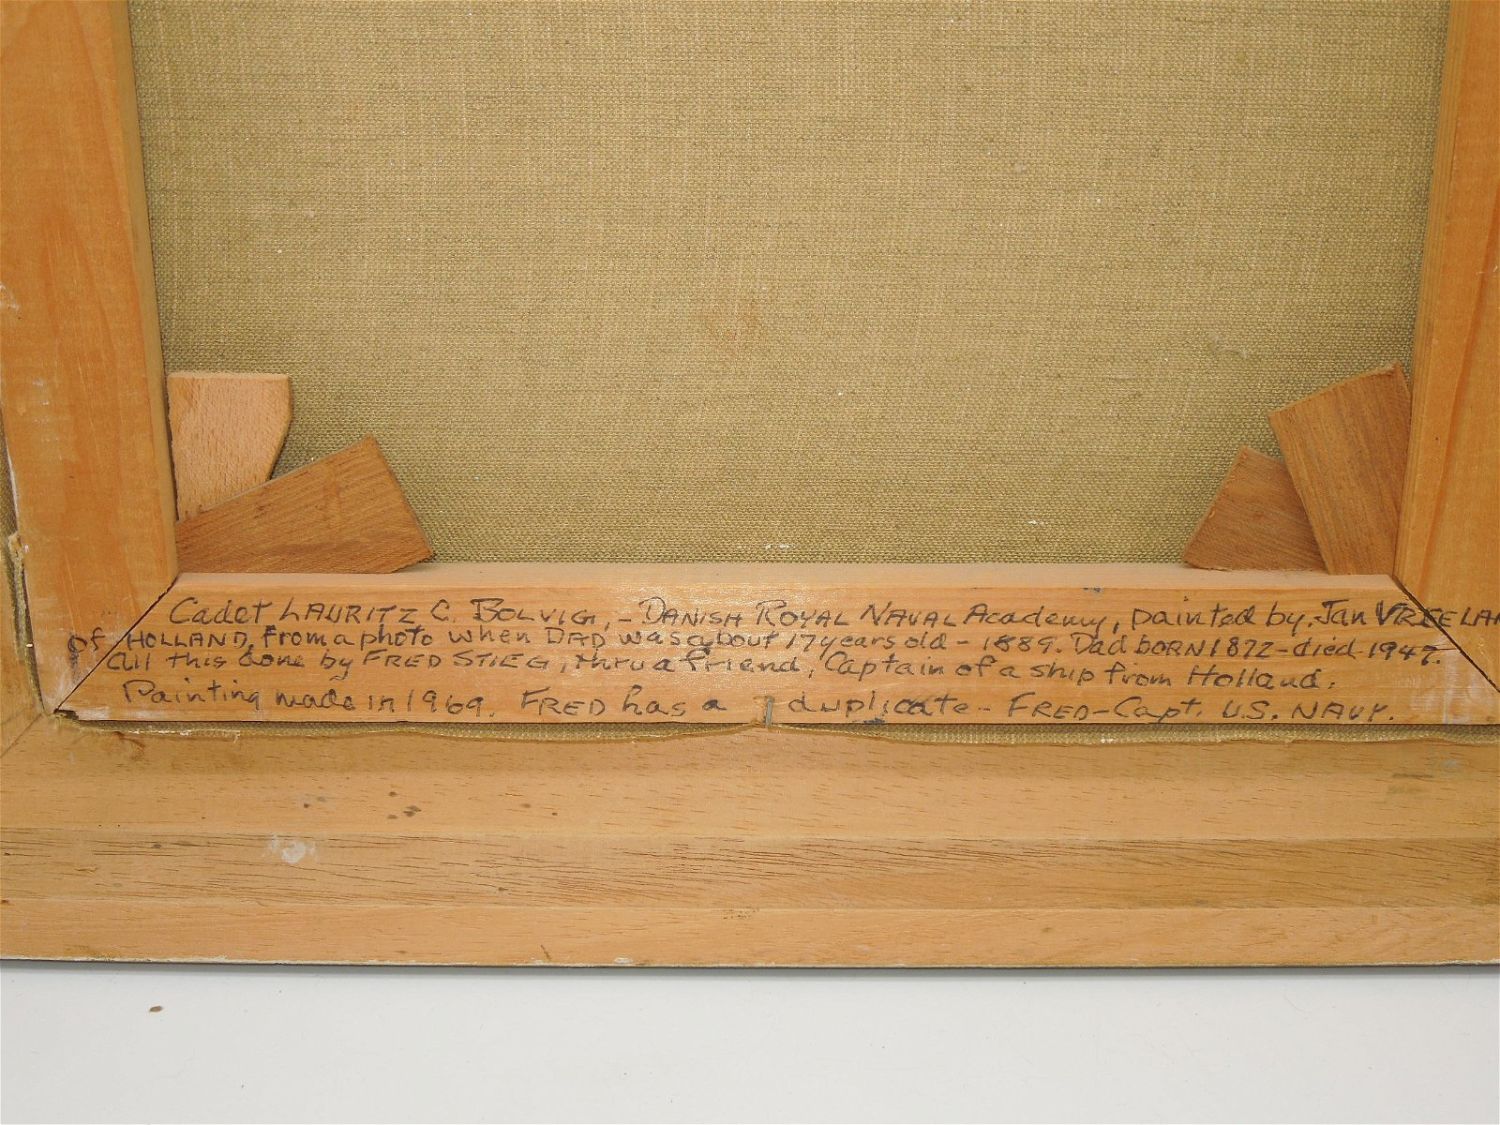 Cadet LAURITZ C. BOLVIG, - DANISH ROYAL NAVAL Academy, painted by Jan VREELAN
of HOLLAND, from a photo when DAD was about 17 years old - 1889. Dad BORN 1872 - died 1947.
All this done by FRED STIEG, thru a friend, Captain of a ship from Holland.
Painting made in 1969. FRED has a duplicate - FRED - Capt. U.S. NAVY.